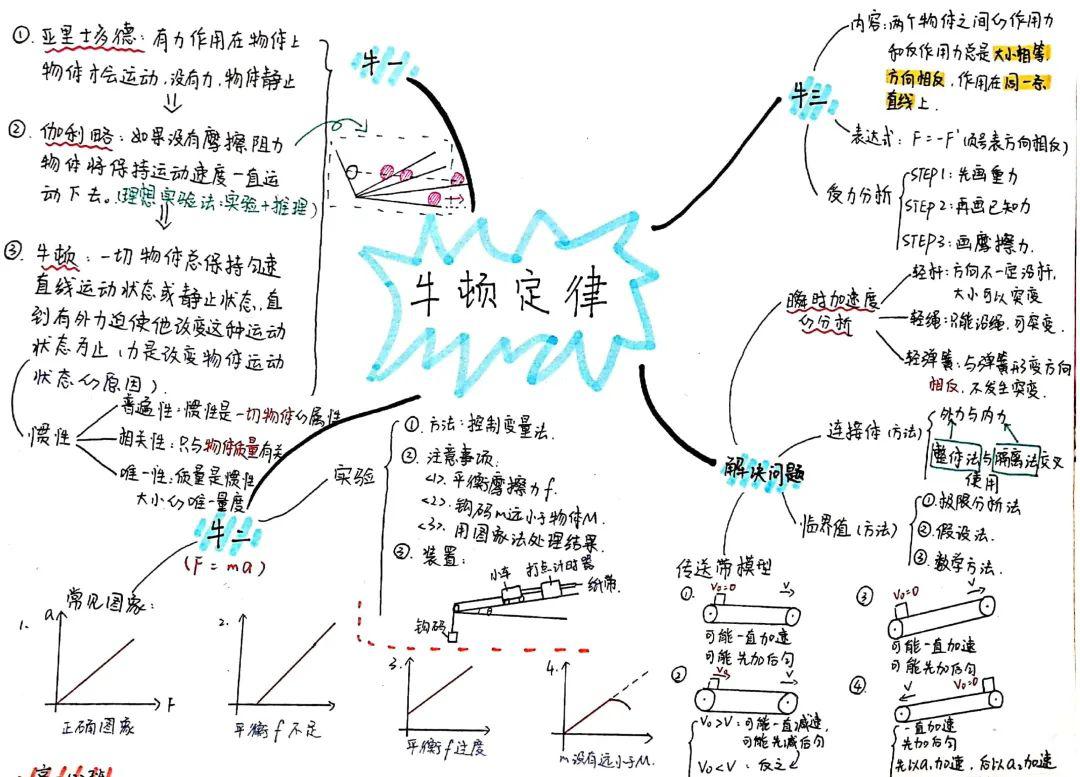 牛顿定律
牛一
①. 亚里士多德：有力作用在物体上
物体才会运动，没有力，物体静止
②. 伽利略：如果没有摩擦阻力
物体将保持运动速度一直运
动下去。(理想实验法：实验+推理)
③. 牛顿：一切物体总保持匀速
直线运动状态或静止状态，直
到有外力迫使他改变这种运动
状态为止，(力是改变物体运动
状态的原因)。
惯性
普遍性：惯性是一切物体的属性
相关性：只与物体质量有关
唯一性：质量是惯性
大小的唯一量度
牛二
(F=ma)
实验
①. 方法：控制变量法.
②. 注意事项：
<1>. 平衡摩擦力f.
<2>. 钩码m远小于物体M.
<3>. 用图象法处理结果.
③. 装置：
小车
打点计时器
纸带.
θ
钩码
常见图象：
1.
a
F
正确图象
2.
平衡f不足
3.
平衡f过度
4.
m没有远小于M.
牛三
内容：两个物体之间的作用力
和反作用力总是大小相等，
方向相反，作用在同一条
直线上.
表达式：F=-F'(负号表方向相反)
受力分析
STEP1：先画重力
STEP2：再画已知力
STEP3：画摩擦力.
解决问题
瞬时加速度
的分析
轻杆：方向不一定沿杆，
大小可以突变
轻绳：只能沿绳，可突变.
轻弹簧：与弹簧形变方向
相反，不发生突变.
连接体(方法)
外力与内力
整体法与隔离法交叉
使用
临界值(方法)
①. 极限分析法
②. 假设法.
③. 数学方法.
传送带模型
①.
V₀=0
V
可能一直加速
可能先加后匀
②
V₀
V
V₀>V：可能一直减速
可能先减后匀
V₀<V：反之
③
V₀=0
V
可能一直加速
可能先加后匀
④.
V
V₀=0
一直加速
先加后匀
先以a₁加速，后以a₂加速